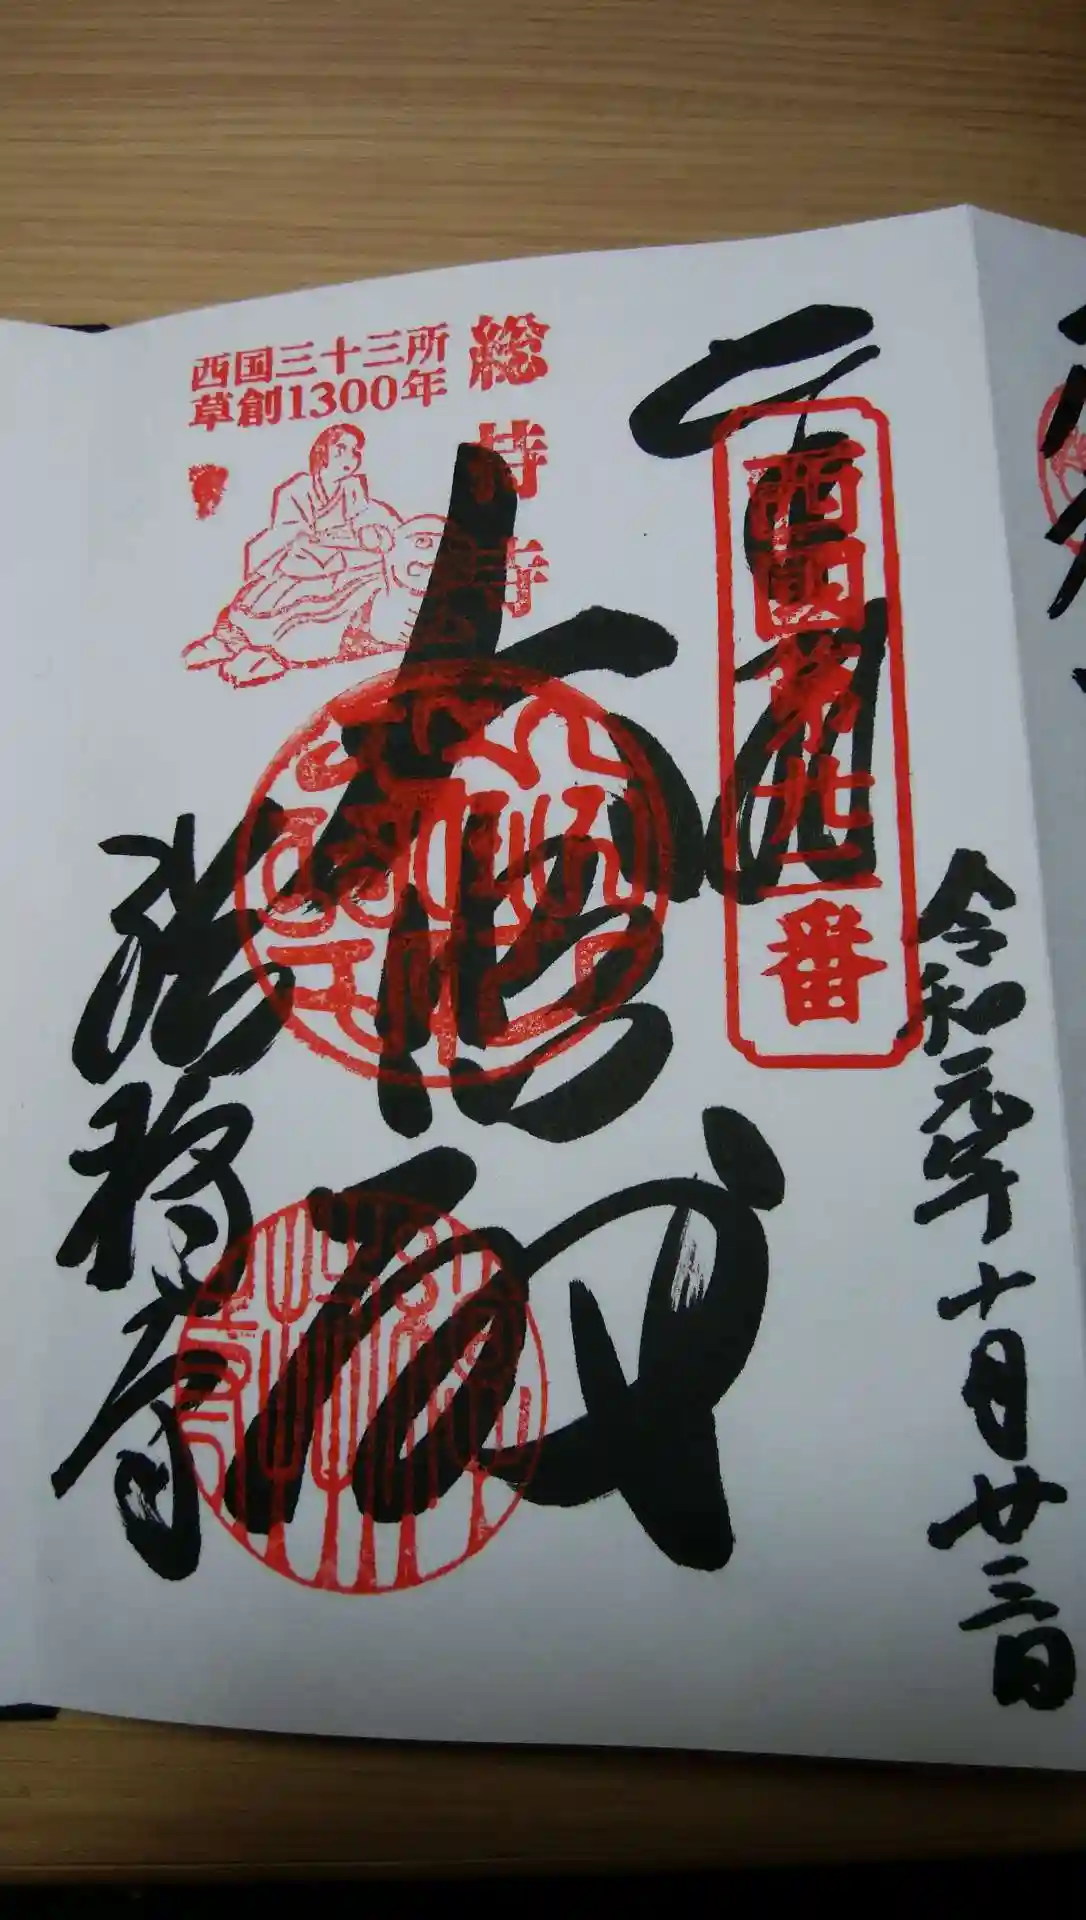 令和元年十月廿三日
奉拝
西国第廿二番
大悲殿
総持寺
西国三十三所
草創1300年
総持寺